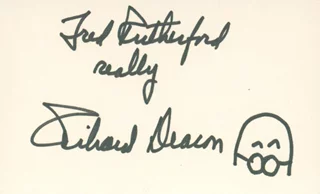 Fred Rutherford
really
Richard Deacon